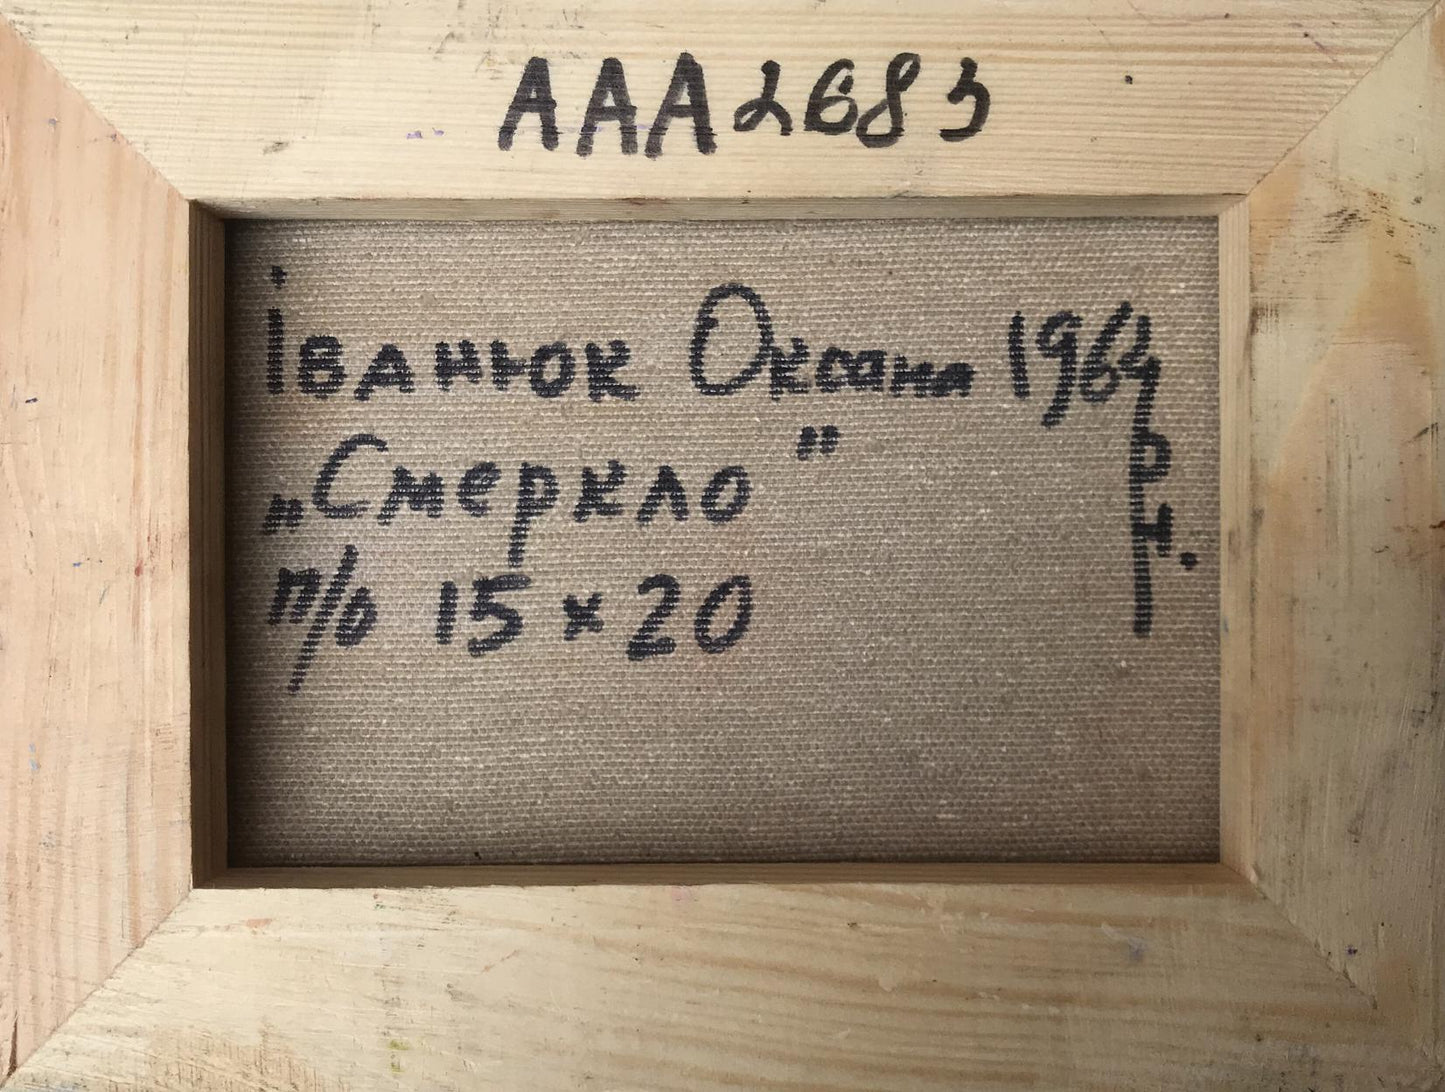 ААА2683
Іванюк Оксана 1964 р.н.
„Смеркло"
п/о 15 x 20